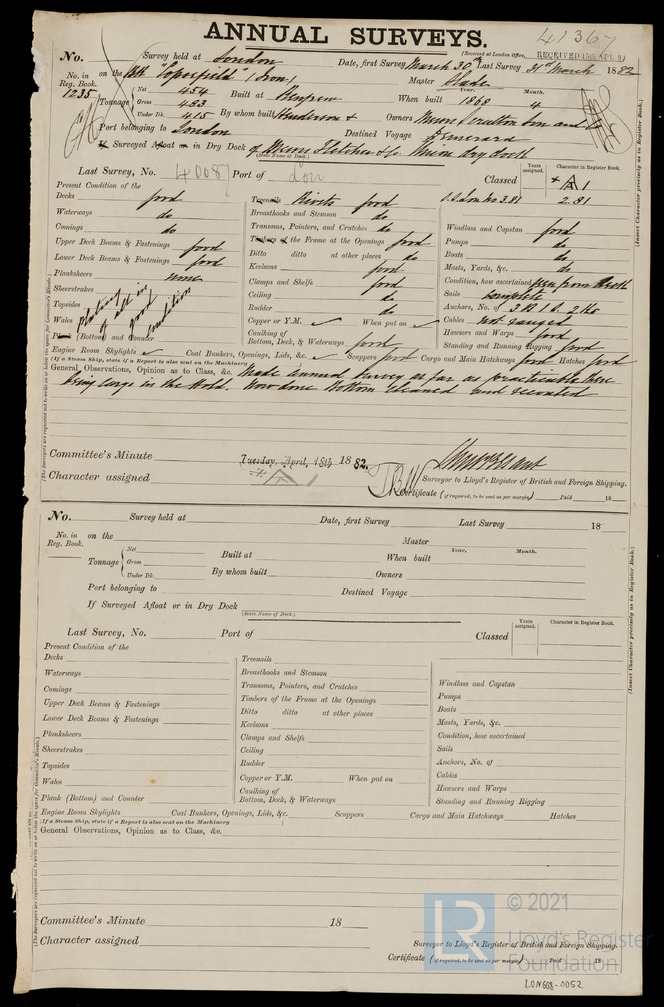 41367
ANNUAL SURVEYS.
(Received at London Office,
No. Survey held at London Date, first Survey March 30th Last Survey 31st March 1882
No. in Reg. Book. on the Bk "Coperfield" (Iron) Master Slade
1235 Tonnage Net 454 Built at Renfrew When built Year. 1868 Month. 4
Gross 483
Under Dk. 415 By whom built Henderson & Owners Messrs
Port belonging to London Destined Voyage
If Surveyed Afloat or in Dry Dock of Messrs Fletcher & Co. Union dry dock
(State Name of Dock.)
Last Survey, No. 40087 Port of Lon Classed Years assigned. Character in Register Book. + A 1
Present Condition of the
Decks good Treenails Rivets good 3.81 2.81
Waterways do Breasthooks and Stemson do
Comings do Transoms, Pointers, and Crutches do Windlass and Capstan good
Upper Deck Beams & Fastenings good Timbers of the Frame at the Openings good Pumps do
Lower Deck Beams & Fastenings good Ditto ditto at other places do Boats do
Planksheers none Keelsons good Masts, Yards, &c. do
Sheerstrakes Clamps and Shelfs good Condition, how ascertained seen from
Topsides Ceiling do Sails complete
Wales plating all in good condition Rudder do Anchors, No. of 3 B 1 S. 2 Ks
Plank (Bottom) and Counter Copper or Y.M. ✓ When put on ✓ Cables not ranged
Caulking of Bottom, Deck, & Waterways good Hawsers and Warps good
Standing and Running Rigging good
Engine Room Skylights ✓ Coal Bunkers, Openings, Lids, &c. ✓ Scuppers good Cargo and Main Hatchways good Hatches good
(If a Steam Ship, state if a Report is also sent on the Machinery )
General Observations, Opinion as to Class, &c. Made annual Survey as far as practicable there
being cargo in the Hold. Now done Bottom cleaned and recoated
Committee's Minute Tuesday, April, 18th 1882.
Character assigned A 1
Surveyor to Lloyd's Register of British and Foreign Shipping.
Certificate (if required, to be sent as per margin) Paid 18
(Insert Character precisely as in Register Book.)
(The Surveyors are requested not to write on or below the space for Committee's Minute.)
No. Survey held at Date, first Survey Last Survey 18
No. in Reg. Book. on the Master
Tonnage Net Built at When built Year. Month.
Gross
Under Dk. By whom built Owners
Port belonging to Destined Voyage
If Surveyed Afloat or in Dry Dock
(State Name of Dock.)
Last Survey, No. Port of Classed Years assigned. Character in Register Book.
Present Condition of the
Decks Treenails
Waterways Breasthooks and Stemson
Comings Transoms, Pointers, and Crutches Windlass and Capstan
Upper Deck Beams & Fastenings Timbers of the Frame at the Openings Pumps
Lower Deck Beams & Fastenings Ditto ditto at other places Boats
Planksheers Keelsons Masts, Yards, &c.
Sheerstrakes Clamps and Shelfs Condition, how ascertained
Topsides Ceiling Sails
Wales Rudder Anchors, No. of
Plank (Bottom) and Counter Copper or Y.M. When put on Cables
Caulking of Bottom, Deck, & Waterways Hawsers and Warps
Standing and Running Rigging
Engine Room Skylights Coal Bunkers, Openings, Lids, &c. Scuppers Cargo and Main Hatchways Hatches
(If a Steam Ship, state if a Report is also sent on the Machinery )
General Observations, Opinion as to Class, &c.
Committee's Minute 18
Character assigned
Surveyor to Lloyd's Register of British and Foreign Shipping.
Certificate (if required, to be sent as per margin) Paid 18
(Insert Character precisely as in Register Book.)
(The Surveyors are requested not to write on or below the space for Committee's Minute.)
LR © 2021
Lloyd's Register
Foundation
LON668-0052